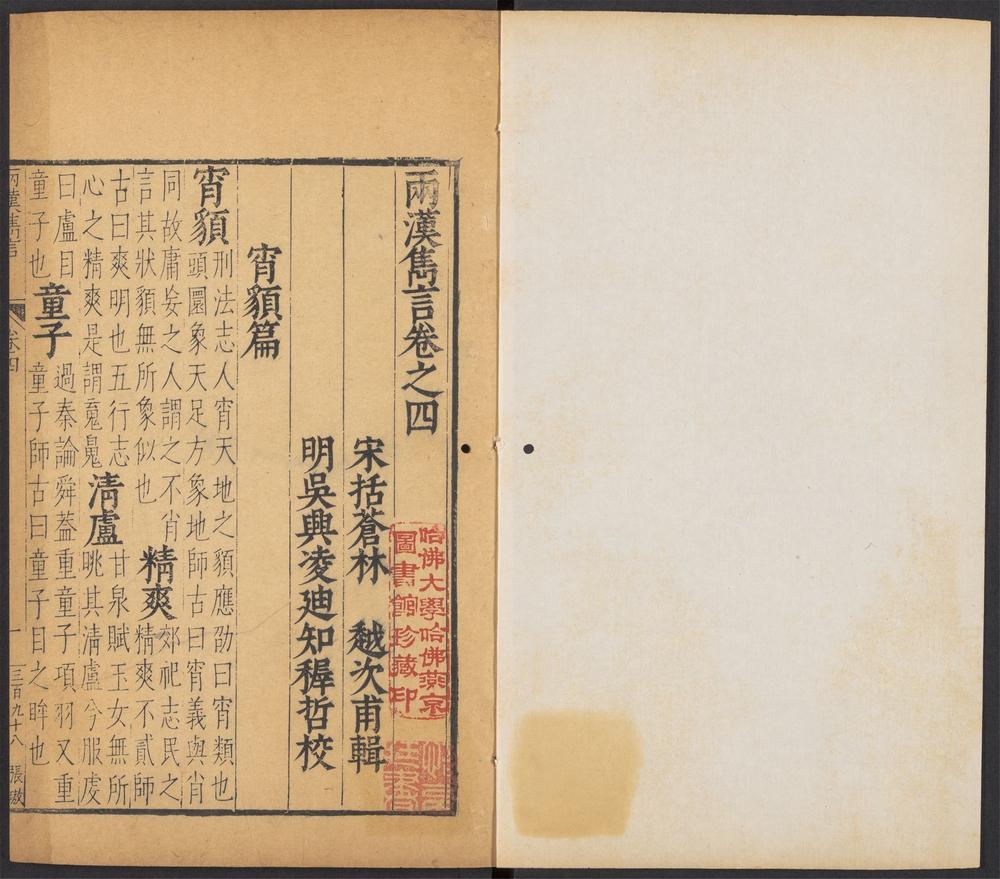 兩漢雋言卷之四
宋括蒼林　越次甫輯
明吳興凌迪知穉哲校
宵䫉篇
宵䫉
刑法志人宵天地之䫉應劭曰宵類也
頭圜象天足方象地師古曰宵義與肖
同故庸妄之人謂之不肖
言其狀䫉無所象似也
精爽
郊祀志民之
精爽不貳師
古曰爽明也五行志
心之精爽是謂䰟魄
清盧
甘泉賦玉女無所
眺其清盧兮服虔
曰盧目
童子也
童子
過秦論舜葢重童子項羽又重
童子師古曰童子目之眸也
兩漢雋言
卷四
一
三百九十八
哈佛大學哈佛燕京
圖書館珍藏印